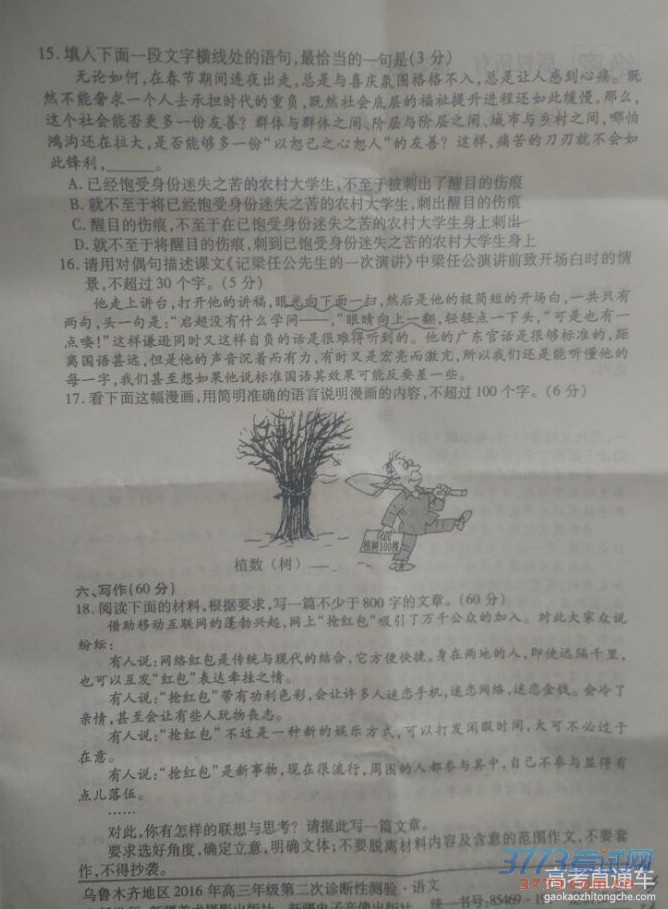 15. 填入下面一段文字横线处的语句,最恰当的一句是(3分)
无论如何,在春节期间连夜出走,总是与喜庆氛围格格不入,总是让人感到心痛。既
然不能奢求一个人去承担时代的重负,既然社会底层的福祉提升进程还如此缓慢,那么,
这个社会能否更多一份友善?群体与群体之间、阶层与阶层之间、城市与乡村之间,哪怕
鸿沟还在拉大,是否能够多一份“以恕己之心恕人”的友善?这样,痛苦的刀刃就不会如
此锋利,______。
A. 已经饱受身份迷失之苦的农村大学生,不至于被刺出了醒目的伤痕
B. 就不至于将已经饱受身份迷失之苦的农村大学生,刺出醒目的伤痕
C. 醒目的伤痕,不至于在已饱受身份迷失之苦的农村大学生身上刺出
D. 就不至于将醒目的伤痕,刺到已饱受身份迷失之苦的农村大学生身上
16. 请用对偶句描述课文《记梁任公先生的一次演讲》中梁任公演讲前致开场白时的情
景,不超过30个字。(5分)
他走上讲台,打开他的讲稿,眼光向下面一扫,然后是他的极简短的开场白,一共只有
两句,头一句是:“启超没有什么学问——,”眼睛向上一翻,轻轻点一下头,“可是也有一
点喽!”这样谦逊同时又这样自负的话是很难得听到的。他的广东官话是很够标准的,距
离国语甚远,但是他的声音沉着而有力,有时又是宏亮而激亢,所以我们还是能听懂他的
每一字,我们甚至想如果他说标准国语其效果可能反要差一些。
17. 看下面这幅漫画,用简明准确的语言说明漫画的内容,不超过100个字。(6分)
植树100棵
植数(树)——
六、写作(60分)
18. 阅读下面的材料,根据要求,写一篇不少于800字的文章。(60分)
借助移动互联网的蓬勃兴起,网上“抢红包”吸引了万千公众的加入。对此大家众说
纷纭:
有人说:网络红包是传统与现代的结合,它方便快捷,身在两地的人,即使远隔千里,
也可以互发“红包”表达牵挂之情。
有人说:“抢红包”带有功利色彩,会让许多人迷恋手机,迷恋网络,迷恋金钱。会冷了
亲情,甚至会让有些人玩物丧志。
有人说:“抢红包”不过是一种新的娱乐方式,可以打发闲暇时间,大可不必过于
在意。
有人说:“抢红包”是新事物,现在很流行,周围的人都参与其中,自己不参与显得有
点儿落伍。
……
对此,你有怎样的联想与思考?请据此写一篇文章。
要求选好角度,确定立意,明确文体;不要脱离材料内容及含意的范围作文,不要套
作,不得抄袭。
3773考试网
高考直通车
乌鲁木齐地区2016年高三年级第二次诊断性测验·语文
统一书号:85469
gaokaozhitongche.com